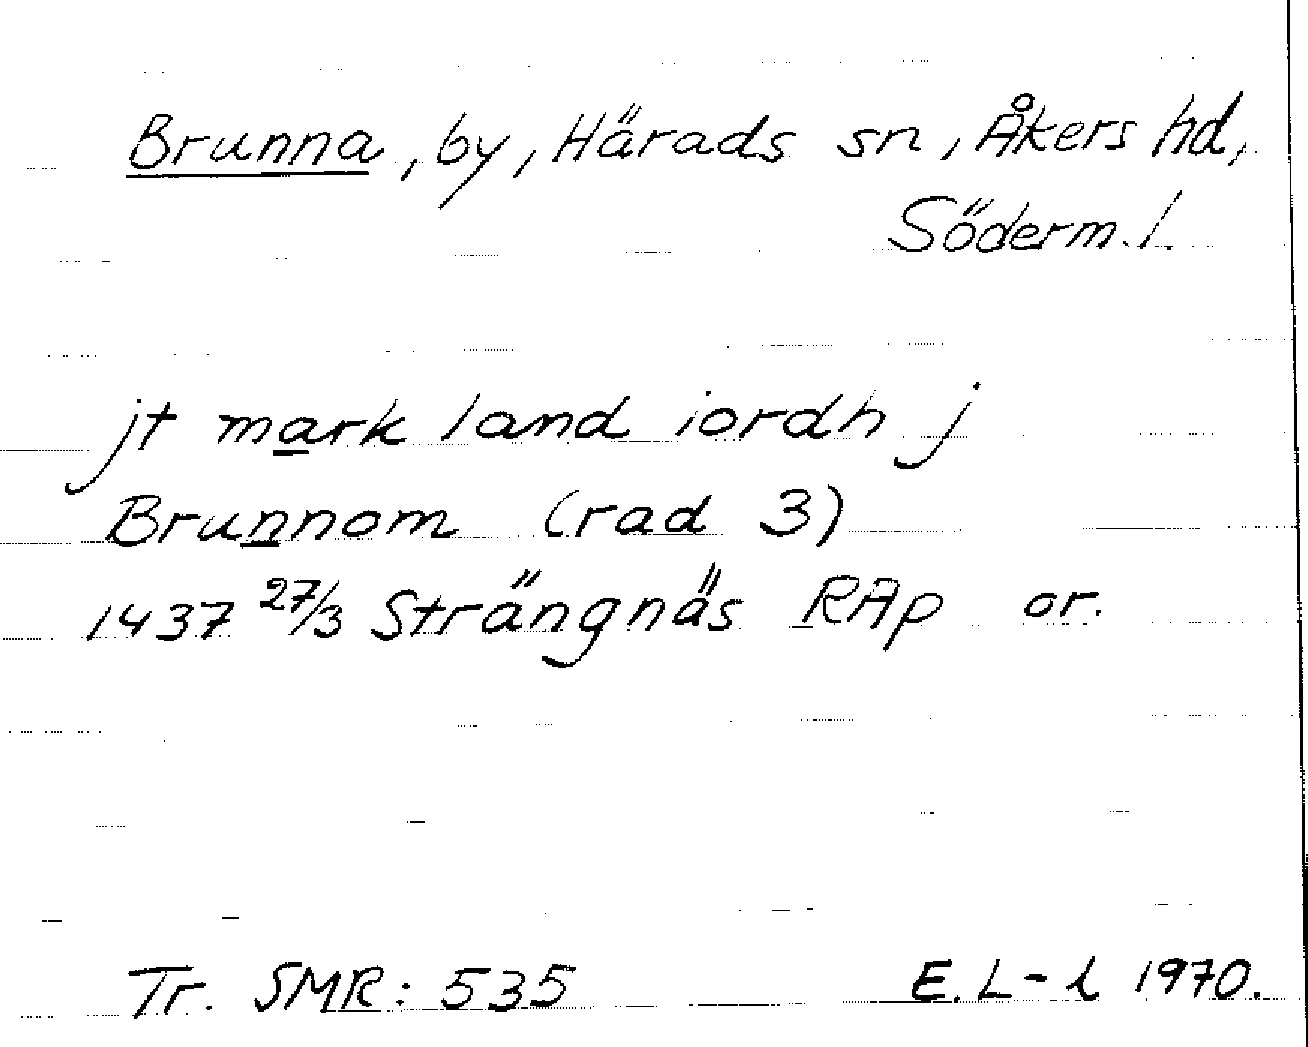 Brunna, by, Härads sn, Åkers hd,
Söderm. l.
jt mark land iordh j
Brunnom (rad 3)
1437 27/3 Strängnäs RAp or.
Tr. SMR: 535 E. L-l 1970.